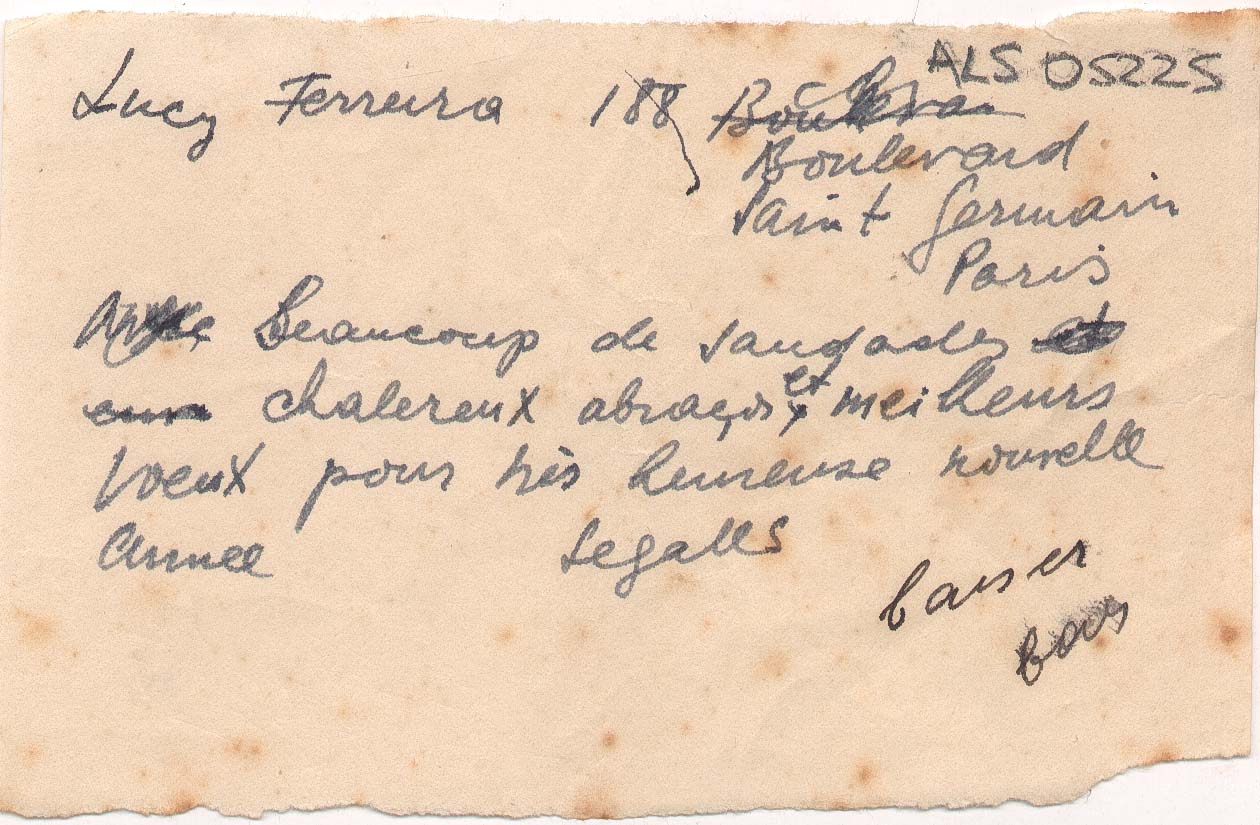 ALS 05225
Lucy Ferreira 188
Boulevard
Saint Germain
Paris
Beaucoup de saugades et
chalereux abraços et meilheurs
voeux pour très heureuse nouvelle
Année Segalls
baiser